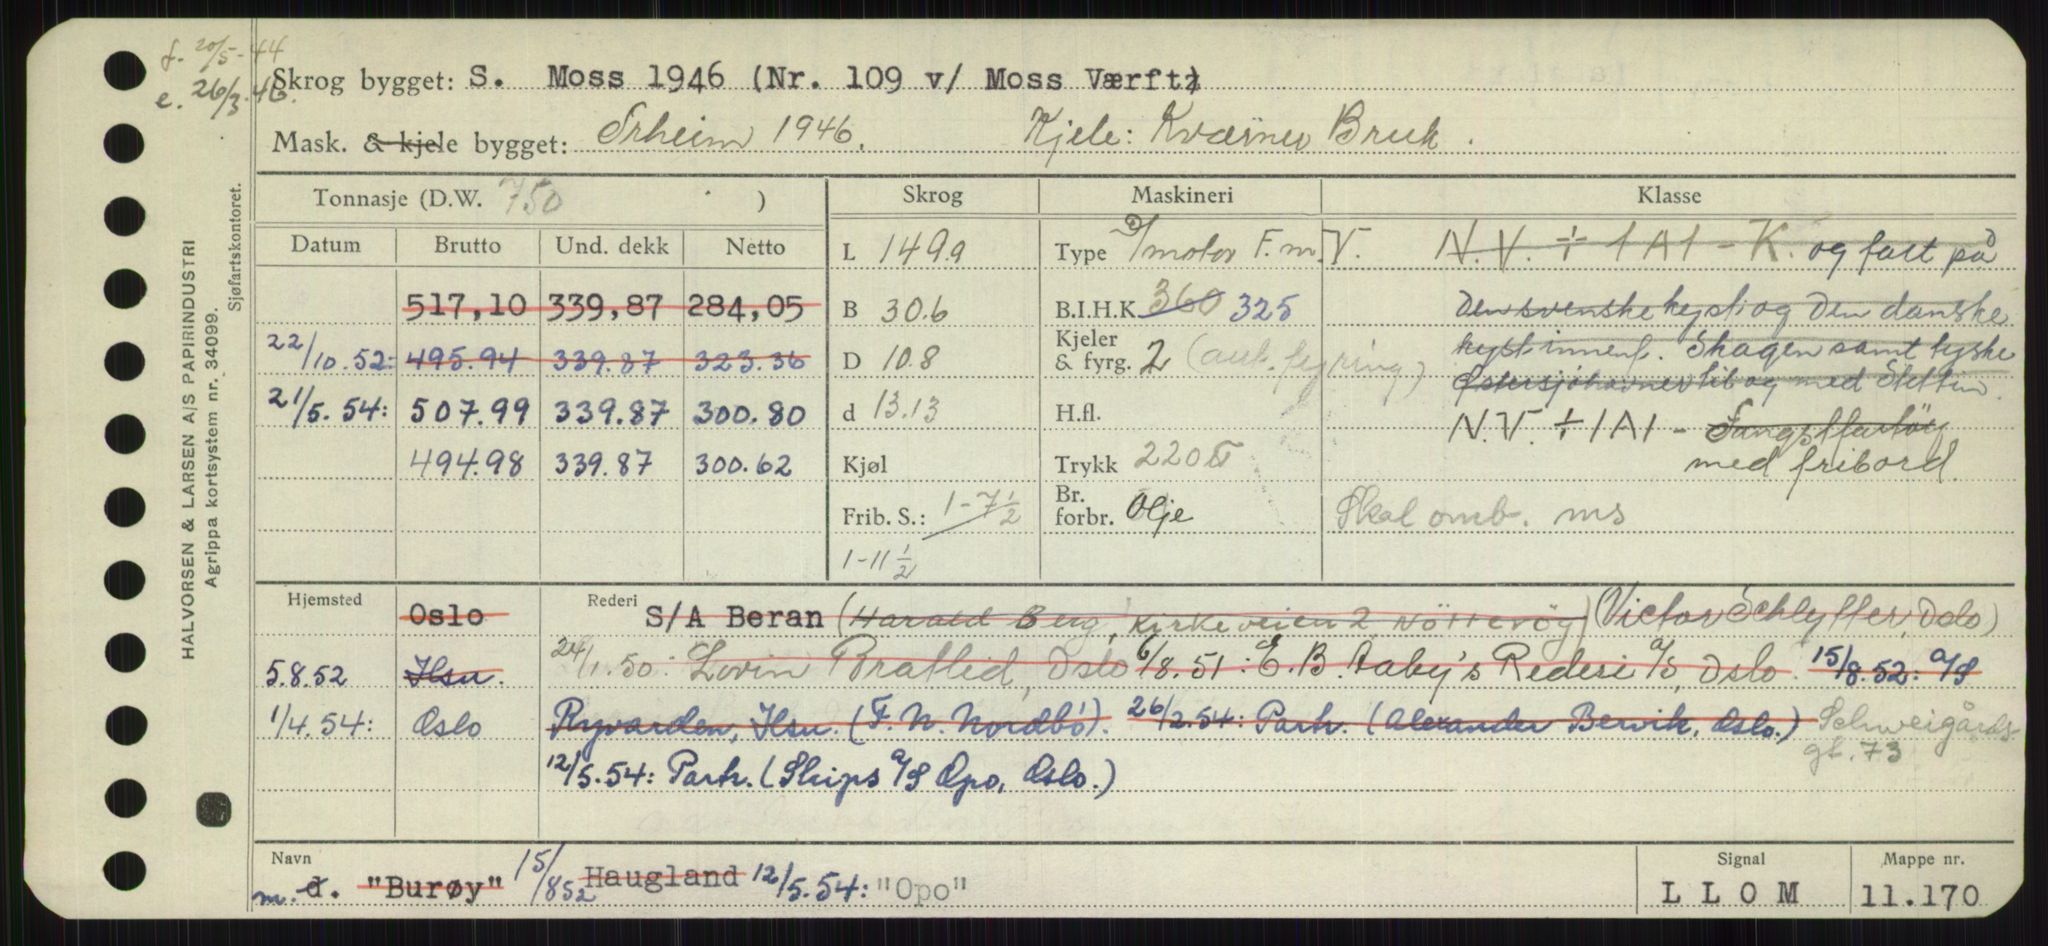 f. 20/5-44
e. 26/3.46.
Skrog bygget: S. Moss 1946 (Nr. 109 v/ Moss Værft)
Mask. & kjele bygget: Srheim 1946. Kjele: Kværner Bruk.
HALVORSEN & LARSEN A/S PAPIRINDUSTRI
Agrippa kortsystem nr. 34099.
Sjøfartskontoret.
Tonnasje (D.W. 750 ) Skrog Maskineri Klasse
Datum Brutto Und. dekk Netto
517,10 339,87 284,05
22/10.52: 495.94 339.87 323.36
21/5.54: 507.99 339.87 300.80
494.98 339.87 300.62
L 149.9
B 30.6
D 10.8
d 13.13
Kjøl
Frib. S.: 1-7 1/2
1-11 1/2
Type D/motor F.m.V.
B.I.H.K. 360 325
Kjeler & fyrg. 2 (aut. fyring)
H.fl.
Trykk 220
Br. forbr. Olje
N.V. ÷ 1A1 - K. og fart på
Den svenske kyst og Den danske
kyst innenf. Skagen samt tyske
Østersjøhavner til og med Stettin.
N.V. ÷ 1A1 - Fangstfartöy
med fribord.
Skal omb. ms
Hjemsted Oslo Rederi S/A Beran (Harald Berg, Kirkeveien 2, Nötteröy) (Victor Schlytter, Oslo)
5.8.52 Hsu. 24/1.50: Lovin Bratlid, Oslo 6/8.51: E.B. Aaby's Rederi A/S, Oslo. 15/8.52: A/S
1/4.54: Oslo Ryvarden, Hsu. (F. N. Nordbö). 26/2.54: Partr. (Alexander Bervik, Oslo.) Schweigårds-
gt. 73
12/5.54: Partr. (Skips A/S Opo, Oslo.)
Navn Signal Mappe nr.
m. d. "Burøy" 15/8 52 Haugland 12/5.54: "Opo" L L O M 11.170